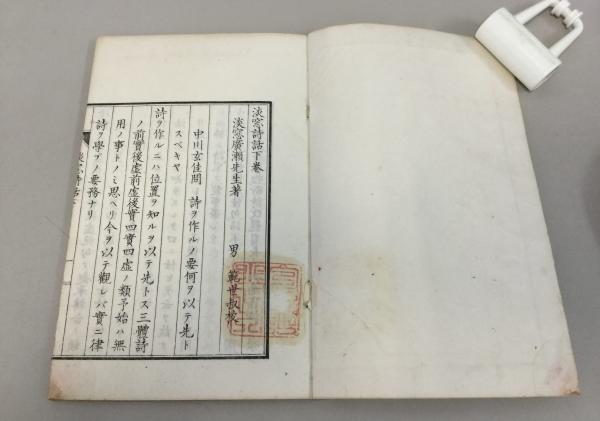 淡窓詩話下巻
淡窓廣瀬先生著　男　範世叔校
中川玄佳問　詩ヲ作ルノ要何ヲ以テ先ト
スベキヤ
詩ヲ作ルニハ位置ヲ知ルヲ以テ先トス三體詩
ノ前實後虛前虛後實四實四虛ノ類予始ハ無
用ノ事トノミ思ヘリ今ヲ以テ觀レバ實ニ律
詩ヲ學ブノ要務ナリ
淡窓詩話